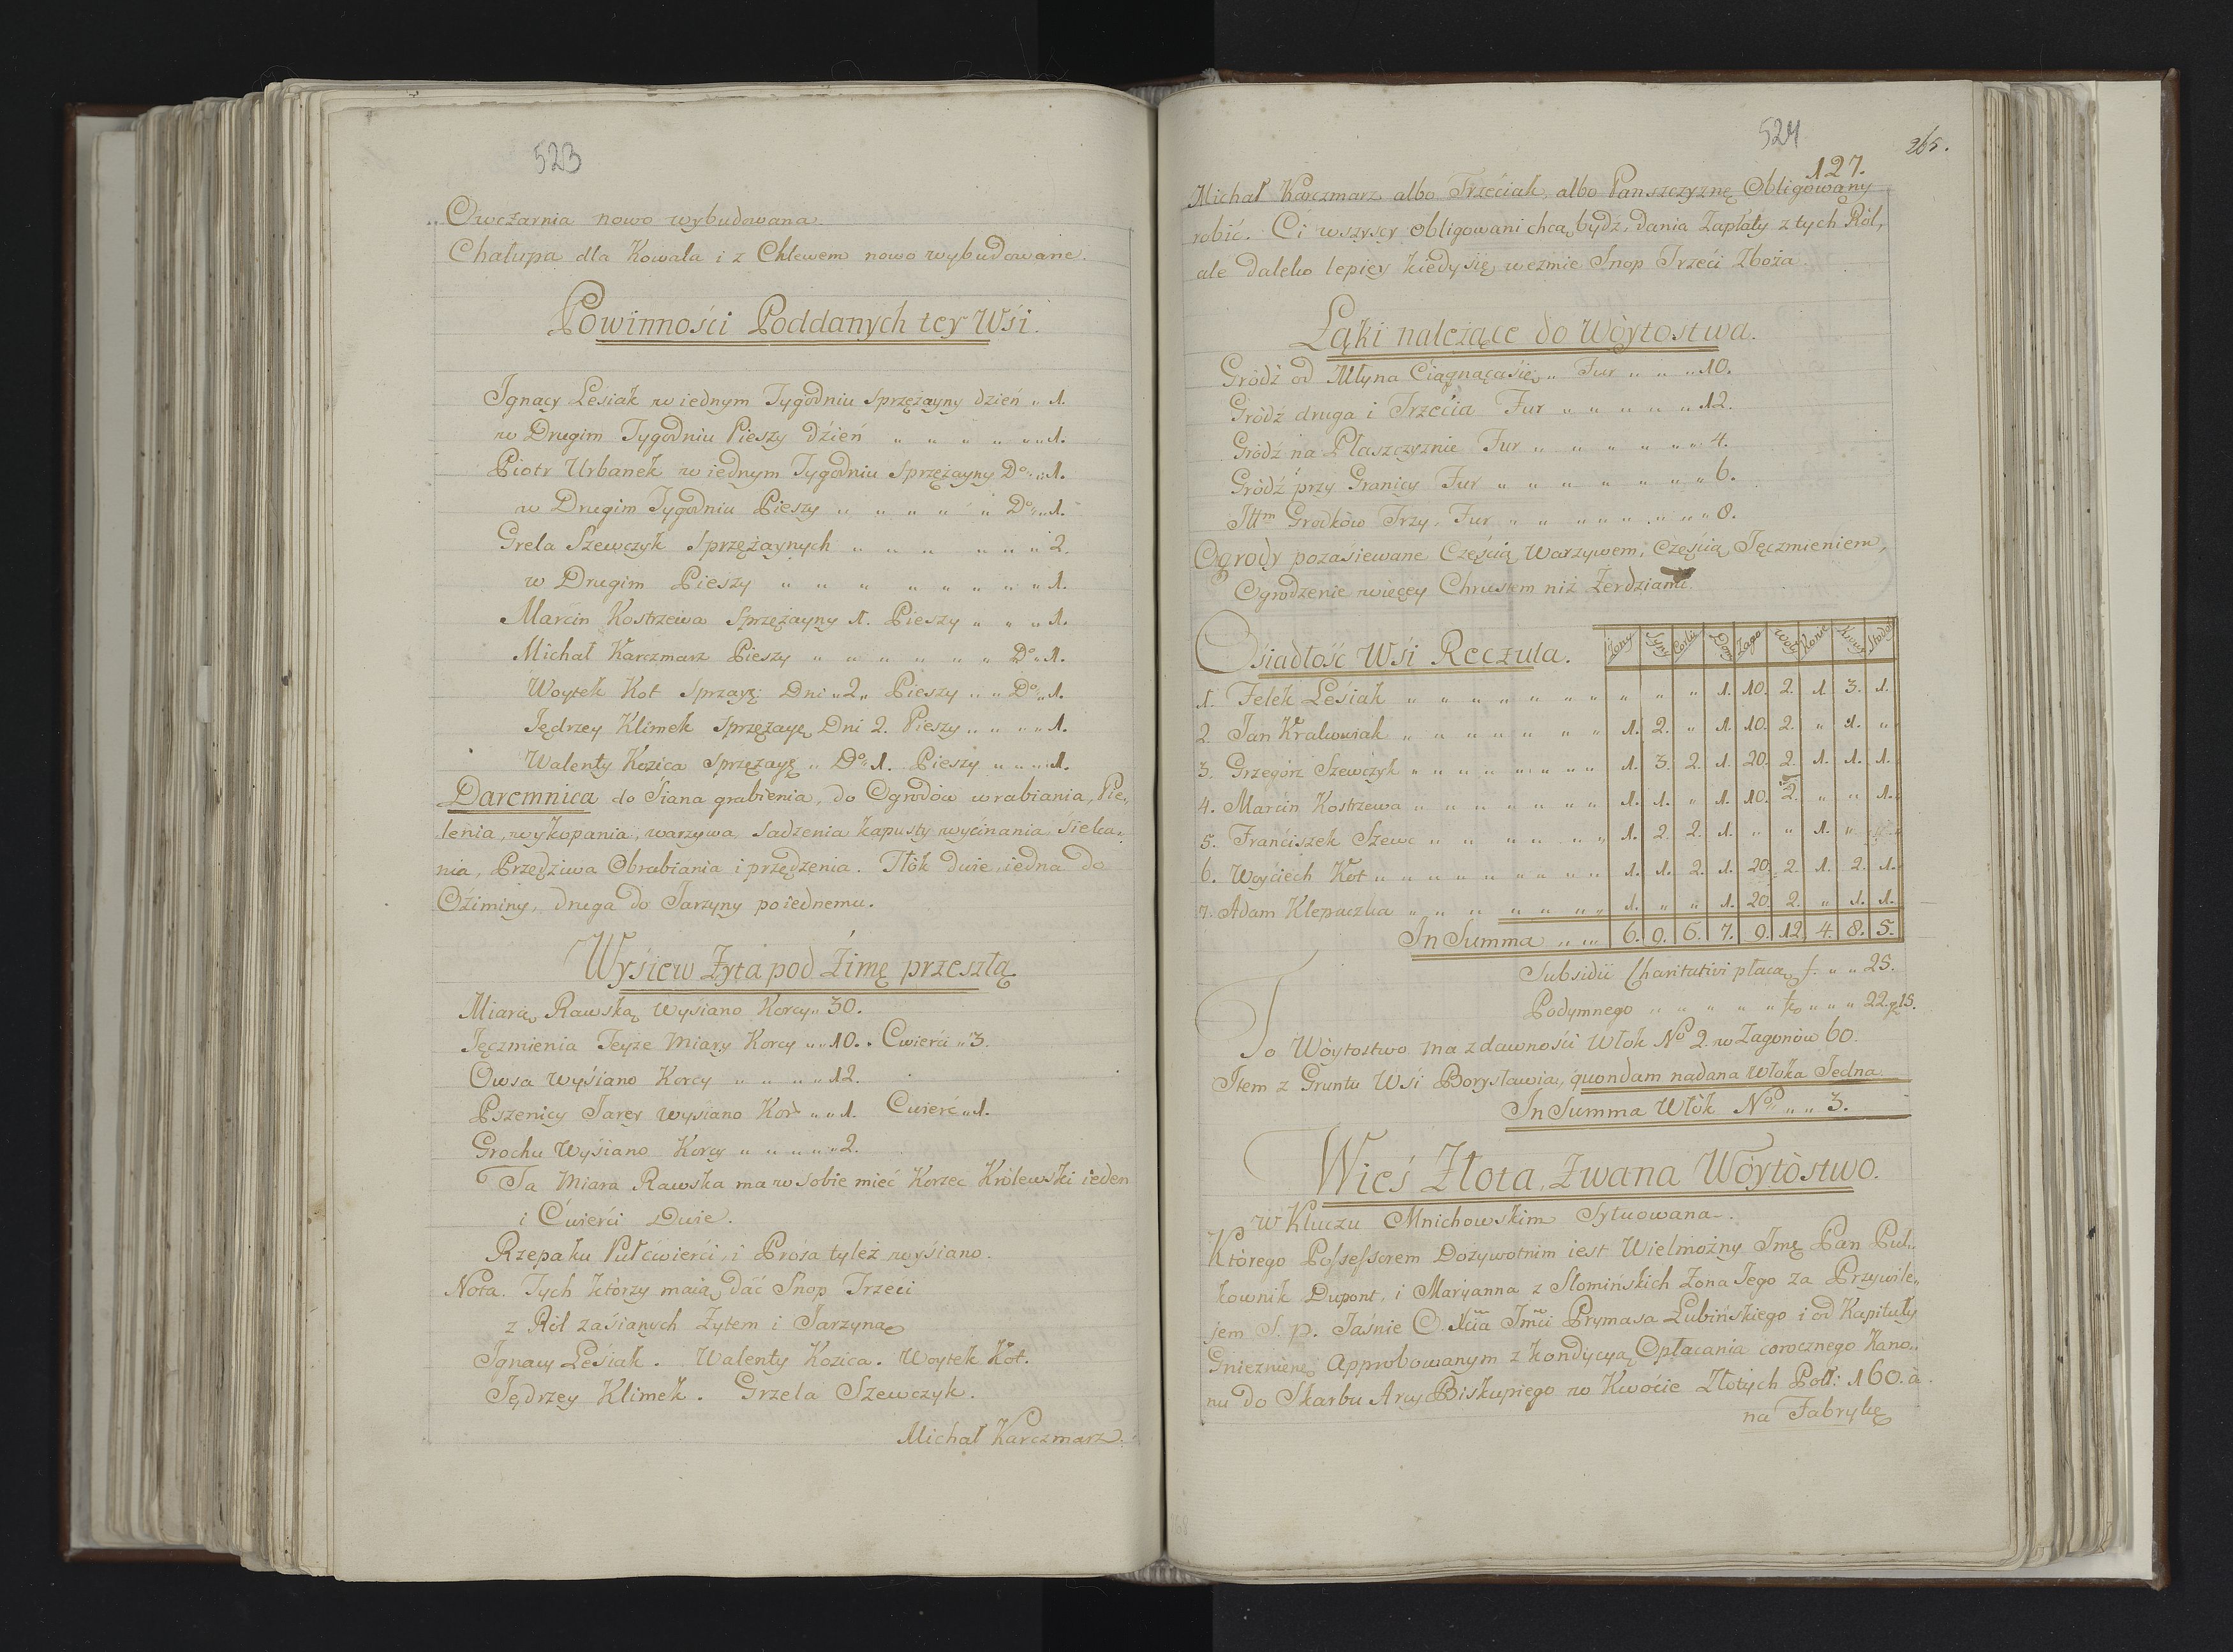 523
Owczarnia nowo wybudowana.
Chałupa dla Kowala i z Chlewem nowo wybudowane.
Powinności Poddanych tey Wśi.
Jgnacy Leśiak w iednym Tygodniu Sprzężayny dzien „ 1.
w Drugim Tygodniu Pieszy dźień „ „ „ „ „ „ 1.
Piotr Urbanek w iednym Tygodniu Sprzężayny Do „ „ 1.
w Drugim Tygodniu Pieszy „ „ „ „ „ Do „ „ 1.
Grela Szewczyk Sprzężaynych „ „ „ „ „ „ 2.
w Drugim Pieszy „ „ „ „ „ „ „ „ 1.
Marcin Kostrzewa Sprzężayny 1. Pieszy „ „ „ 1.
Michał Karczmarz Pieszy „ „ „ „ „ „ Do „ 1.
Woytek Kot Sprzayę: Dni „ 2 „ Pieszy „ „ Do „ 1.
Jędrzey Klimek Sprzężayę Dni 2. Pieszy „ „ „ „ 1.
Walenty Kozica Sprzężayę „ Do „ 1. Pieszy „ „ „ 1.
Daremnica do Śiana grabienia, do Ogrodów wrabiania, Pie„
lenia, wykopania, warzywa, Sadzenia kapusty wyćinania Śieka„
nia, Przędziwa Obrabiania i przędzenia. Tłók dwie, iedna do
Oźiminy, druga do Jarzyny po iednemu.
Wyśiew Żyta pod Źimę przeszłą
Miarą Rawską Wyśiano Korcy „ 30.
Jęczmienia Teyże Miary Korcy „ „ 10. „ Cwierci „ 3.
Owsa Wyśiano Korcy „ „ „ „ 12.
Pszenicy Jarey Wyśiano Kor „ „ 1. Cwierć „ 1.
Grochu Wyśiano Korcy „ „ „ „ 2.
Ta Miara Rawska ma w sobie mieć Korzec Królewski ieden
i Ćwierći Dwie.
Rzepaku Pułćwierći, i Prosa tyleż wyśiano.
Nota. Tych którzy maią dać Snop Trzeci
z Ról zaśianych Żytem i Jarzyną
Jgnacy Leśiak. Walenty Kozica. Woytek Kot.
Jędrzey Klimek. Grzela Szewczyk.
Michał Karczmarz.
524
265.
127.
Michał Karczmarz albo Trzećiak, albo Panszczyznę Obligowany
robić. Ci wszyscy obligowani chcą bydź, dania Zapłaty z tych Ról,
ale daleko lepiey kiedy się weźmie Snop Trzeći Zboża.
Łąki należące do Wòytostwa.
Gródź od Młyna Ciągnącasię „ Fur „ „ „ 10.
Gródź druga i Trzećia Fur „ „ „ „ „ 12.
Gródź na Płaszczyznie Fur „ „ „ „ „ „ 4.
Gródź przy Granicy Fur „ „ „ „ „ „ „ 6.
Ittm Grodków Trzy, Fur „ „ „ „ „ „ „ „ 8.
Ogrody pozaśiewane Częścią Warzywem, Częścią Jęczmieniem,
Ogrodzenie więcey Chrustem niż Żerdziami.
Osiadłość Wśi Reczula. Żony Syny Corki Dom Zago Woły Konie Krowy
1. Felek Leśiak „ „ „ „ „ „ „ „ „ „ „ 1. 10. 2. 1. 3. 1.
2. Jan Krakowiak „ „ „ „ „ „ „ 1. 2. „ 1. 10. 2. „ 1. „
3. Grzegórz Szewczyk „ „ „ „ „ „ „ 1. 3. 2. 1. 20. 2. 1. 1. 1.
4. Marcin Kostrzewa „ „ „ „ „ „ „ 1. 1. „ 1. 10. 2. „ „ 1.
5. Franciszek Szewc „ „ „ „ „ „ 1. 2. 2. 1. „ „ 1. „ „
6. Woyciech Kot „ „ „ „ „ „ „ „ 1. 1. 2. 1. 20. 2. 1. 2. 1.
7. Adam Klepaczka „ „ „ „ „ „ „ 1. „ „ 1. 20. 2. „ 1. 1.
In Summa „ „ 6. 9. 6. 7. 9. 12. 4. 8. 5.
Subsidii Charitativi płacą f. „ „ 25.
Podymnego „ „ „ „ „ f. „ „ „ 22. g. 15.
To Wòytostwo ma zdawności Włok No 2. w Zagonów 60.
Item z Gruntu Wśi Borysławia, quondam nadana Włoka Jedna.
In Summa Włók No „ „ 3.
Wieś Złota, Zwana Wòytòstwo.
W Kluczu Mnichowskim Sytuowana.
Którego Possessorem Dożywotnim iest Wielmożny Jmę Pan Puł„
kownik Dupont, i Maryanna z Słomińskich Żona Jego za Przywile„
jem S. p. Jaśnie O. Xcia Jmći Prymasa Łubińskiego i od Kapituły
Gniezninę: Approbowanym z kondycyą Opłacania corocznego Kano„
nu do Skarbu ArcyBiskupiego w Kwocie Złotych Pol: 160. à
na Fabrykę